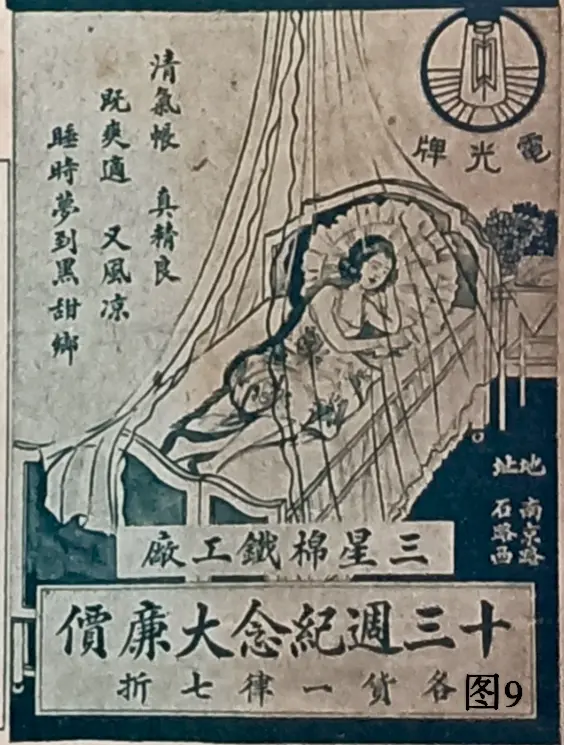 電光牌
清氣帳 真精良
既爽適 又風涼
睡時夢到黑甜鄉
地址
南京路
石路西
三星棉鐵工廠
十三週紀念大廉價
各貨一律七折
图9